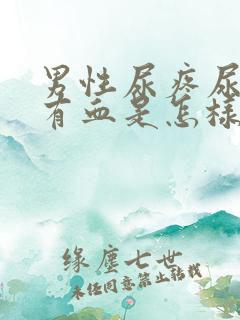 男性尿疼尿
有血是怎样
缘尘七世
未经同意禁止转载